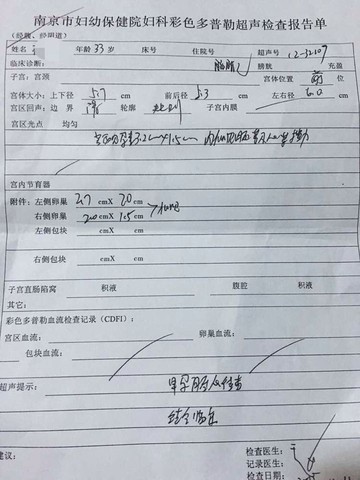 南京市妇幼保健院妇科彩色多普勒超声检查报告单
(经腹、经阴道)
姓名 年龄 33 岁 床号 住院号 超声号 12-32109
临床诊断: 膀胱 充盈
子宫:宫颈 宫体位置 前 位
宫体大小:上下径 5.7 cm 前后径 5.3 cm 左右径 6.0 cm
宫区回声:边界 清 轮廓 规则 子宫内膜
宫区光点 均匀
宫内节育器
附件:左侧卵巢 2.7 cmX 2.0 cm
右侧卵巢 2.0 cmX 1.5 cm
左侧包块 cmX cm
右侧包块 cmX cm
子宫直肠陷窝 积液 腹腔 积液
其它:
彩色多普勒血流检查记录(CDFI):
宫区血流: 卵巢血流:
包块血流:
超声提示: 早孕
结合临床
建议: 检查医生:
记录医生:
检查日期: